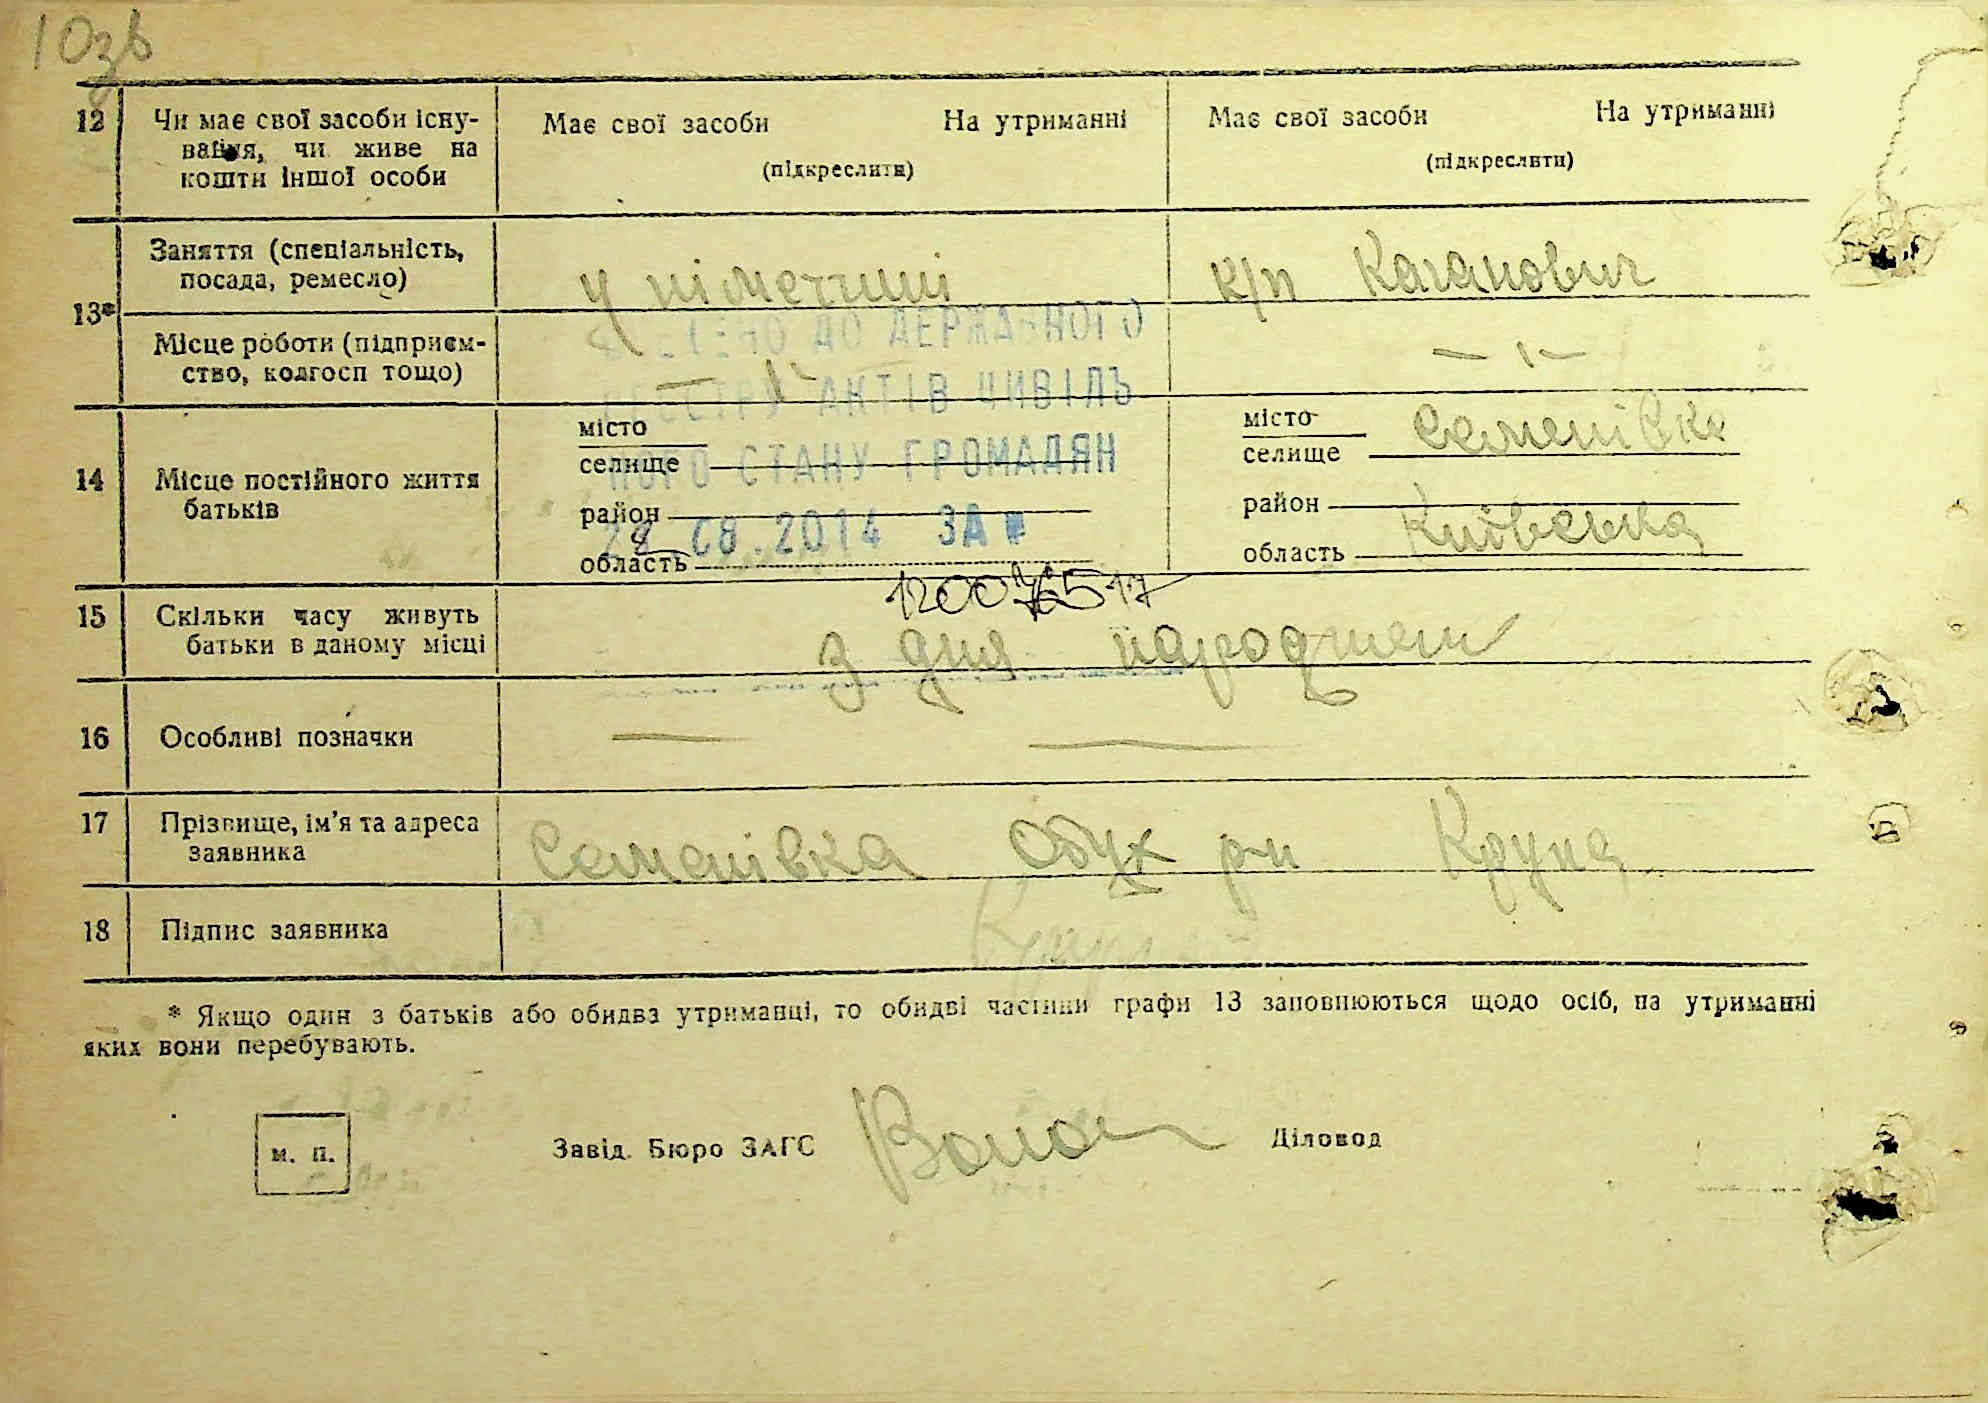 10зв
12 Чи має свої засоби існу-
вання, чи живе на
кошти іншої особи
Має свої засоби На утриманні
(підкреслити)
Має свої засоби На утриманні
(підкреслити)
13*
Заняття (спеціальність,
посада, ремесло)
у німеччині
к/п Каганович
Місце роботи (підприєм-
ство, колгосп тощо)
— " —
— " —
ДО ДЕРЖАВНОГО
РЕЄСТРУ АКТІВ ЦИВІЛЬ
НОГО СТАНУ ГРОМАДЯН
08.2014 ЗА №
120076517
14 Місце постійного життя
батьків
місто
селище
район
область
місто Семенівка
селище
район
область Київська
15 Скільки часу живуть
батьки в даному місці
З дня народжен
16 Особливі позначки
— —
17 Прізвище, ім'я та адреса
заявника
Семенівка Обух р-н Крупа
18 Підпис заявника
* Якщо один з батьків або обидва утриманці, то обидві частини графи 13 заповнюються щодо осіб, на утриманні
яких вони перебувають.
м. п.
Завід. Бюро ЗАГС
Діловод